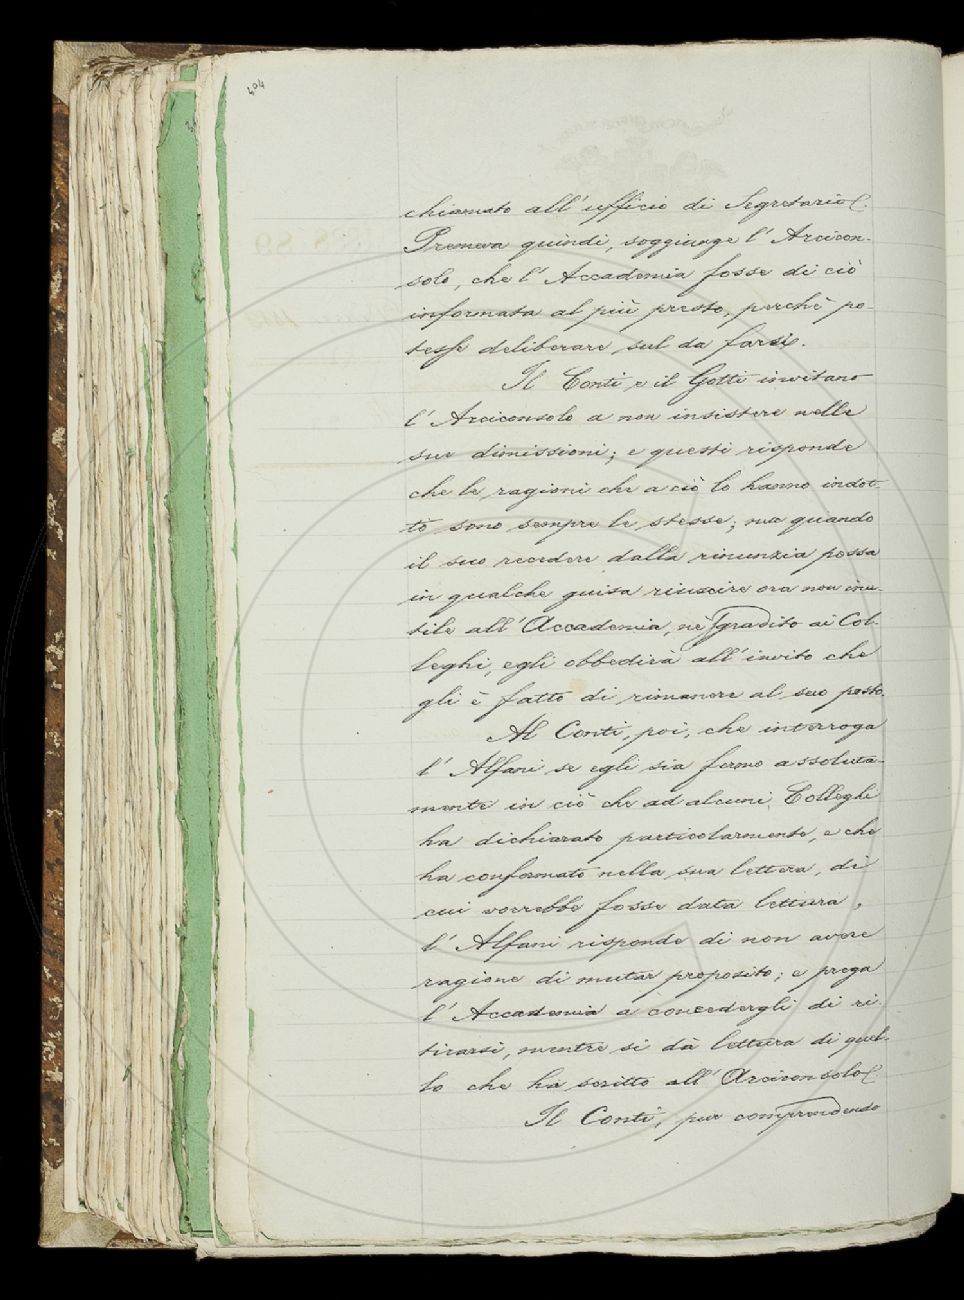 404
chiamato all'ufficio di Segretario.
Premeva quindi, soggiunge l'Arcicon-
solo, che l'Accademia fosse di ciò
informata al più presto, perchè po-
tesse deliberare sul da farsi.
Il Conti e il Gotti invitano
l'Arciconsolo a non insistere nelle
sue dimissioni; e questi risponde
che le ragioni che a ciò lo hanno indot-
to sono sempre le stesse; ma quando
il suo recedere dalla rinunzia possa
in qualche guisa riuscire ora non inu-
tile all'Accademia, nè sgradito ai Col-
leghi, egli obbedirà all'invito che
gli è fatto di rimanere al suo posto.
Al Conti, poi, che interroga
l'Alfani se egli sia fermo assoluta-
mente in ciò che ad alcuni Colleghi
ha dichiarato particolarmente, e che
ha confermato nella sua lettera, di
cui vorrebbe fosse data lettura,
l'Alfani risponde di non avere
ragione di mutar proposito; e prega
l'Accademia a concedergli di ri-
tirarsi, mentre si dà lettura di quel-
lo che ha scritto all'Arciconsolo.
Il Conti, pur comprendendo